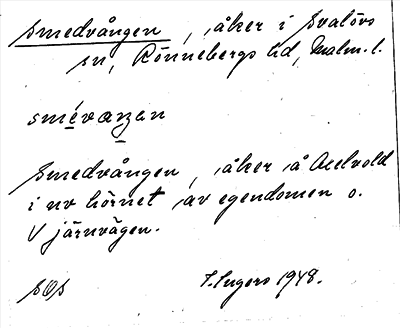 Smedvången, åker i Svalövs
sn, Rönnebergs hd, Malm. l.
smévaŋen
Smedvången, åker å Axelvold
i nv hörnet av egendomen o.
V järnvägen.
SOS
I. Ingers 1948.